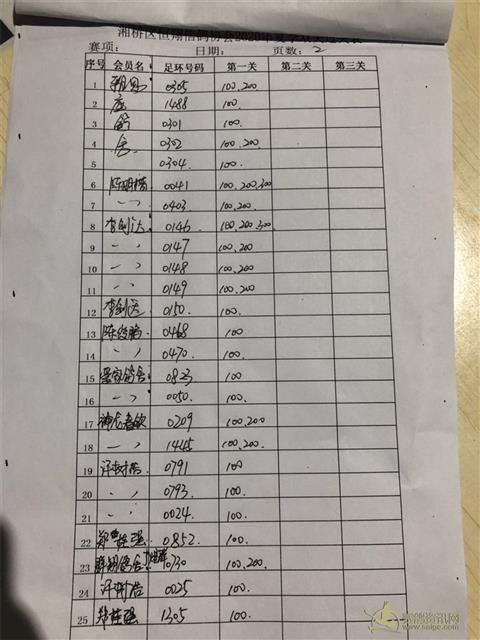 湘桥区恒翔信鸽协会2020年夏季
赛项: 日期: 页数: 2
序号 会员名 足环号码 第一关 第二关 第三关
1 0305 100.200
2 1488 100.
3 0301 100.
4 舍 0302 100.200
5 0304. 100.
6 陈明楷 0041 100.200.300
7 〃 0403 100.200
8 李创达 0146 100.200.300
9 〃 0147 100.200
10 〃 0148 100.200
11 〃 0149 100.200
12 李创达 0150. 100.
13 0468 100
14 〃 0470. 100.
15 0823 100
16 〃 0050. 100.
17 0209 100.200
18 〃 1445 100.200.
19 许树浩. 0791 100
20 〃 0793. 100.
21 〃 0024. 100.
22 郑桂强. 0852. 100.
23 0730 100.200
24 许树浩 0025 100.
25 郑桂强 1305 100.
赛鸽资讯网
www.saige.com